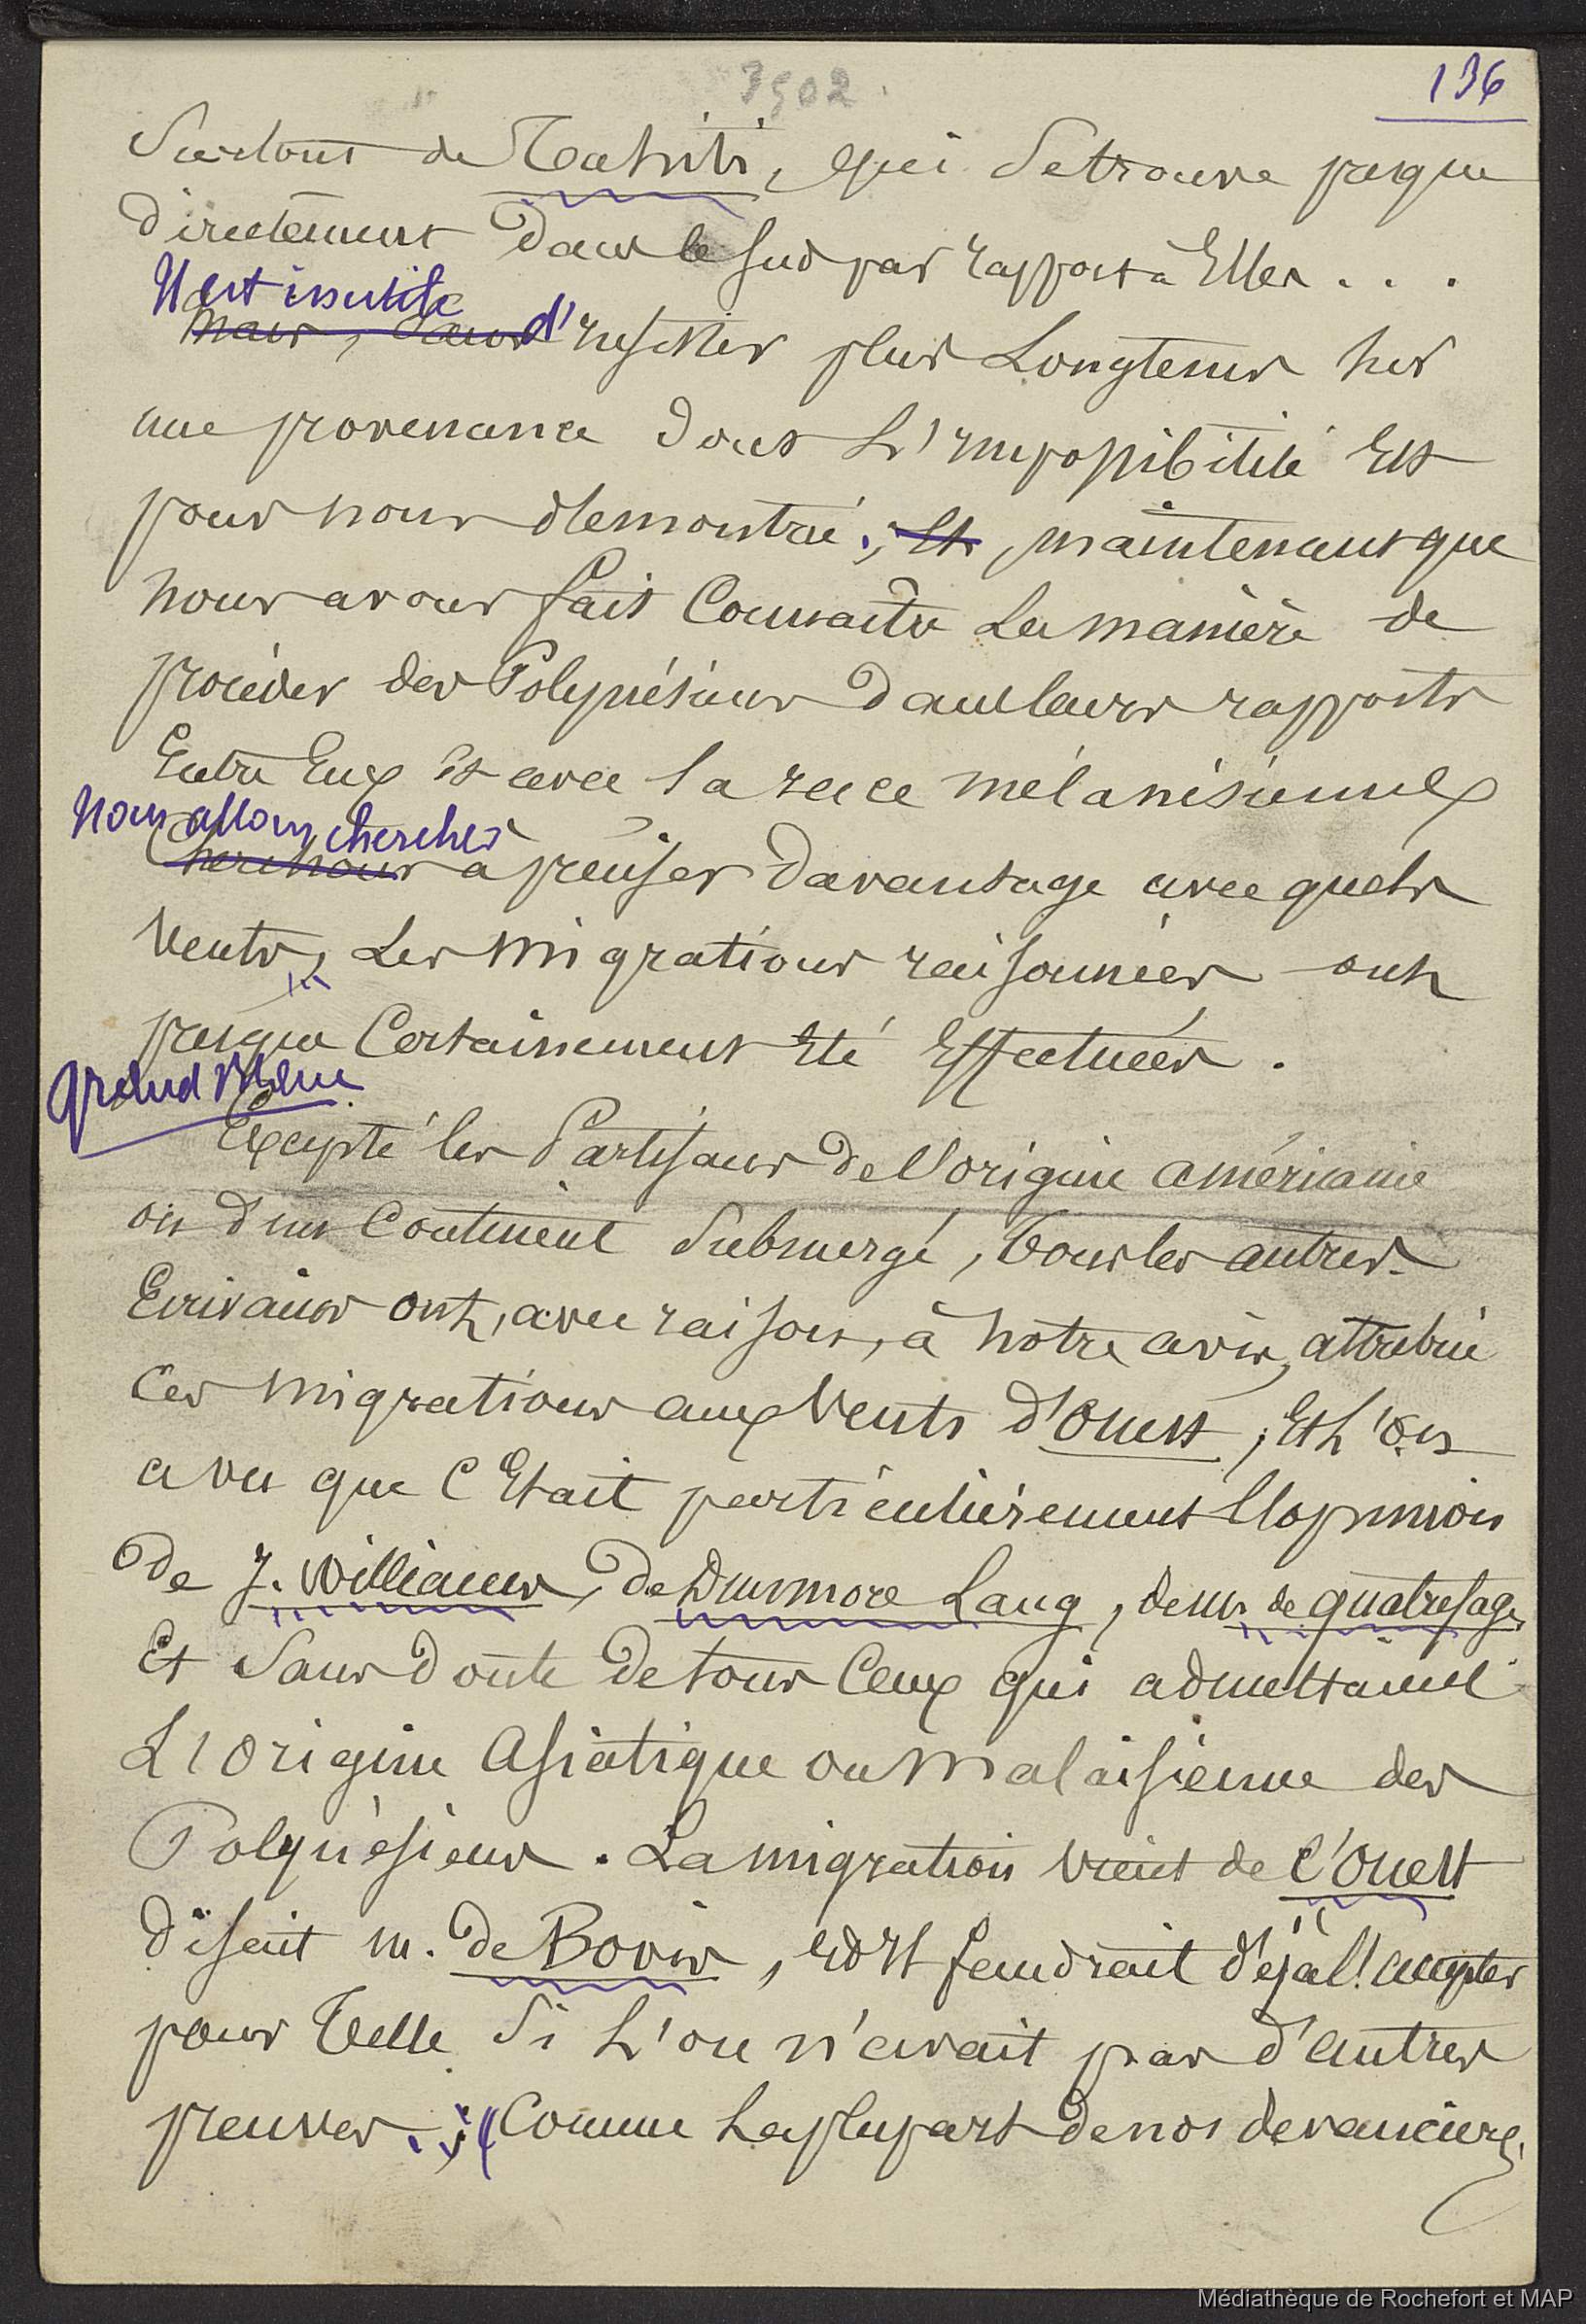 3502
136
Surtout de Tahiti, qui se trouve presque
directement dans le sud par rapport à Elles . . .
Il est inutile
Mais, sans d'insister plus Longtems sur
une provenance dont L'impossibilité Est
pour nous démontrée; Et, maintenant que
nous avons fait Connaitre La manière de
procéder des Polynésiens dans leurs rapports
Entre Eux Et avec la race mélanésienne,
Nous allons chercher
Cherchons à préciser davantage avec quels
vents, Les migrations raisonnées ont
presque Certainement Eté Effectuées.
Quand même
Excepté les Partisans de l'origine américaine
ou d'un Continent Submergé, tous les autres
Ecrivains ont, avec raison, à notre avis, attribué
Ces migrations aux Vents d'Ouest; Et L'on
a vu que C'Etait particulièrement l'opinion
de J. Williams, de Dunmore Lang, de mr de quatrefages
Et Sans doute de tous Ceux qui admettaient
L'Origine Asiatique ou malaisienne des
Polynésiens. La migration vient de l'Ouest
disait m. de Bovis, Et il faudrait déjà l'accepter
pour telle Si L'on n'avait pas d'autres
preuves. ; ( Comme La plupart de nos devanciers,
Médiathèque de Rochefort et MAP